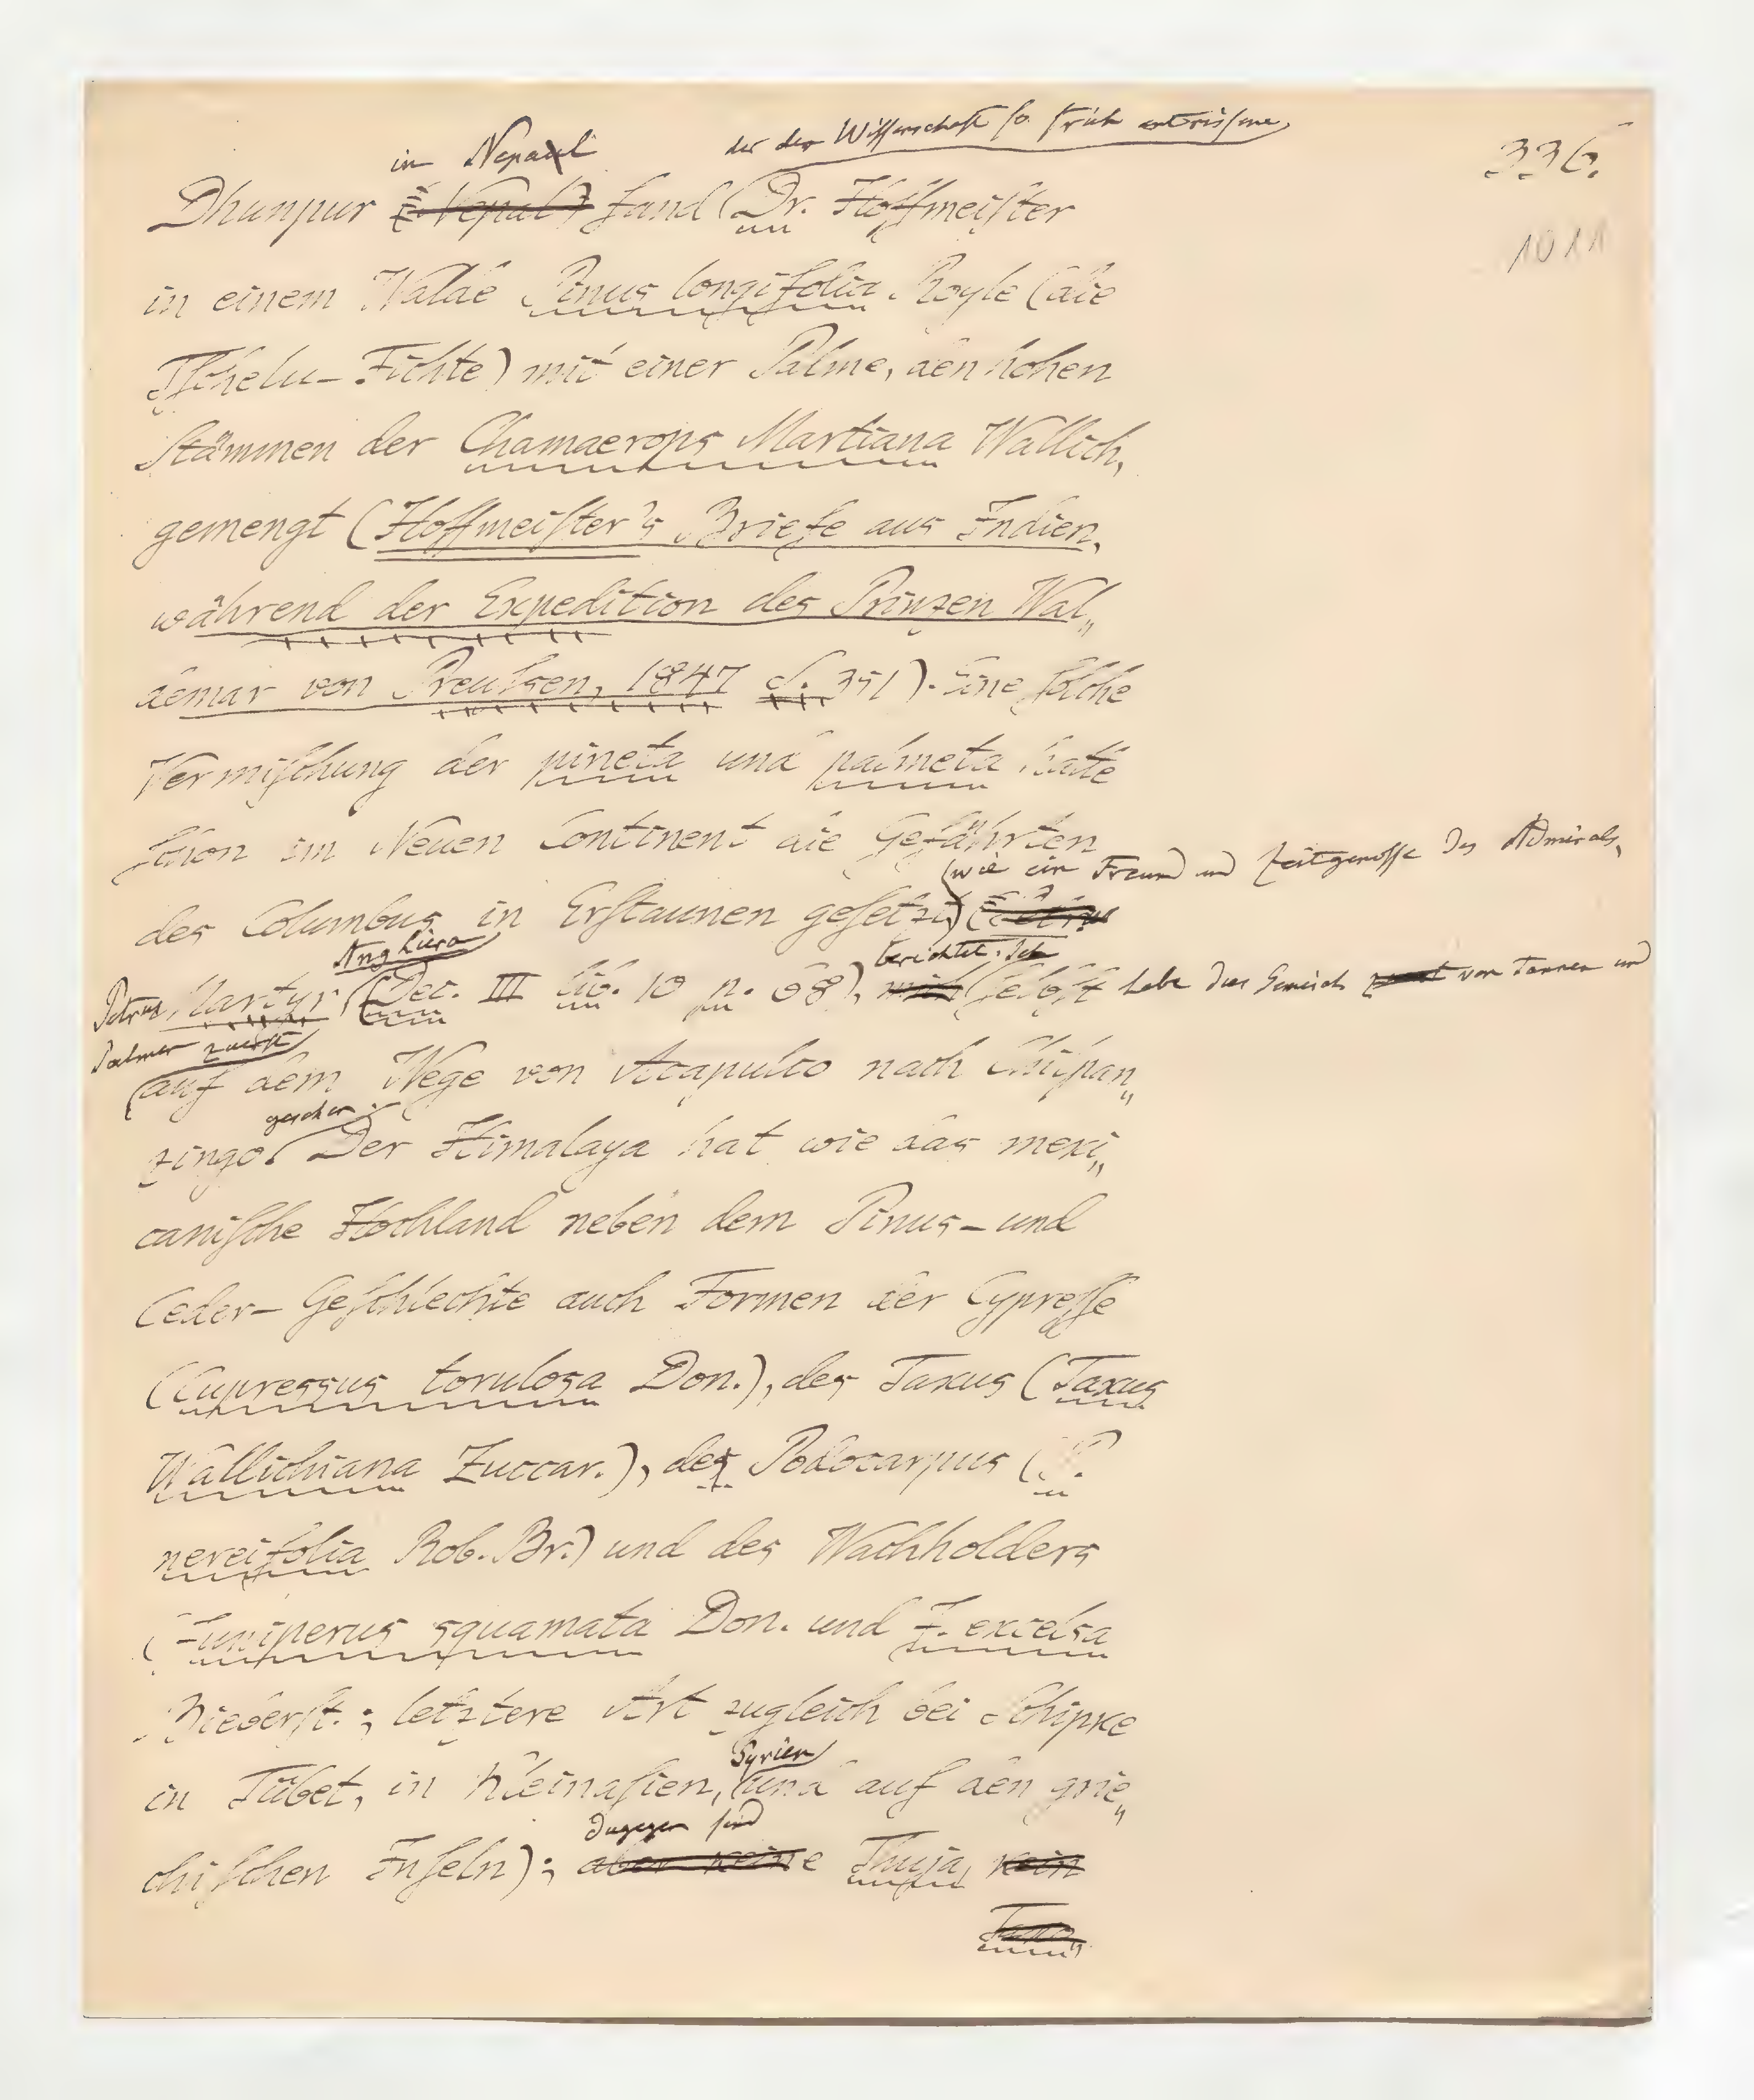 336.
1011
in Nepal der der Wissenschaft so früh entrissene
Dhunpur (Nepal) fand Dr. Hoffmeister
in einem Walde Pinus longifolia Royle (die
Tschelu-Fichte) mit einer Palme, den hohen
Stämmen der Chamaerops Martiana Wallich,
gemengt (Hoffmeister's Briefe aus Indien
während der Expedition des Prinzen Wal„
demar von Preußen, 1847 S. 351). Eine solche
Vermischung der pineta und palmeta hatte
schon im Neuen Continent die Gefährten
(wie ein Freund und Zeitgenosse des Admirals,
des Columbus in Erstaunen gesetzt)
Anghiera berichtet. Ich
Petrus Martyr (Dec. III lib. 10 p. 68), selbst habe das Gemisch von Tannen und
Palmen zuerst
auf dem Wege von Acapulco nach Chilpan„
gesehen.
zingo. Der Himalaya hat wie das mexi„
canische Hochland neben dem Pinus- und
Ceder-Geschlechte auch Formen der Cypresse
(Cupressus torulosa Don.), des Taxus (Taxus
Wallichiana Zuccar.), des Podocarpus (P.
nereifolia Rob. Br.) und des Wachholders
(Juniperus squamata Don. und J. excelsa
Bieberst.; letztere Art zugleich bei Schipke
Syrien
in Tübet, in Kleinasien, und auf den grie„
dagegen sind
chischen Inseln); aber keine Thuja, kein